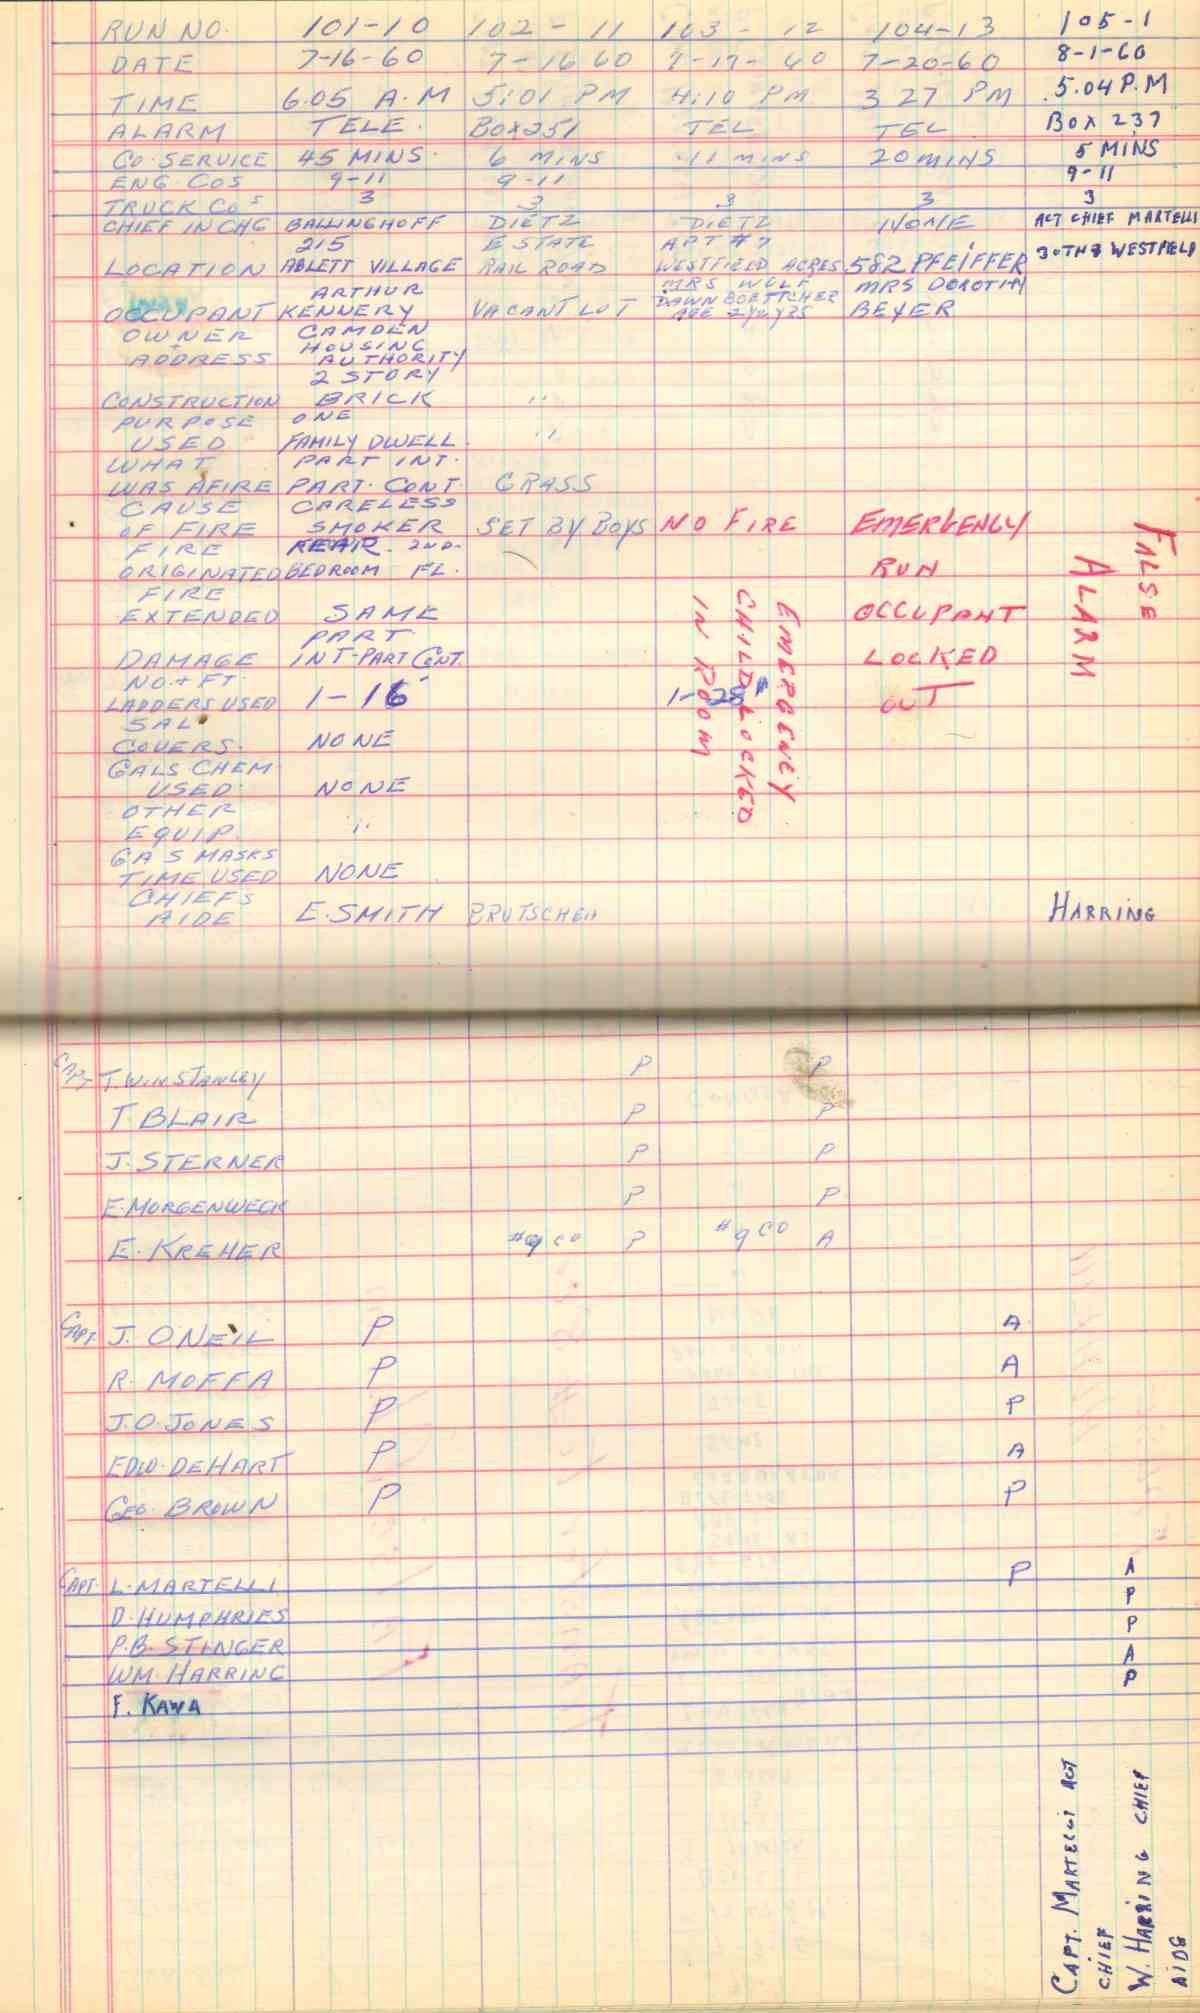 RUN NO. 101-10 102 - 11 103 - 12 104-13 105-1
DATE 7-16-60 7-16 60 7-17-60 7-20-60 8-1-60
TIME 6.05 A.M 5:01 PM 4:10 PM 3 27 PM 5.04 P.M
ALARM TELE. BOX 251 TEL TEL BOX 237
CO. SERVICE 45 MINS. 6 MINS 11 MINS 20 MINS 5 MINS
ENG. COS 9-11 9-11 9-11
TRUCK COS 3 3 3 3 3
CHIEF IN CHG BALLINGHOFF DIETZ DIETZ NONE ACT CHIEF MARTELLI
215 ESTATE APT #7
LOCATION ABLETT VILLAGE RAIL ROAD WESTFIELD ACRES 582 PFEIFFER 30TH & WESTFIELD
ARTHUR MRS WOLF MRS DOROTHY
OCCUPANT KENNERY VACANT LOT DAWN BOETTCHER BEYER
AGE 2 1/2 YRS
OWNER CAMDEN
HOUSING
ADDRESS AUTHORITY
2 STORY
CONSTRUCTION BRICK "
PURPOSE ONE
USED FAMILY DWELL. "
WHAT PART INT.
WAS AFIRE PART. CONT. GRASS
CAUSE CARELESS
OF FIRE SMOKER SET BY BOYS NO FIRE EMERGENCY
FIRE REAR. 2ND.
ORIGINATED BEDROOM FL. RUN
FIRE
EXTENDED SAME OCCUPANT
PART
DAMAGE INT-PART CONT. LOCKED
NO. & FT.
LADDERS USED 1-16' 1-28' OUT
SAL
COVERS. NONE
GALS CHEM
USED. NONE
OTHER
EQUIP. "
GAS MASKS
TIME USED NONE
CHIEFS
AIDE E. SMITH BRUTSCHEA HARRING
EMERGENCY
CHILD LOCKED
IN ROOM
FALSE
ALARM
CAPT T. WINSTANLEY P P
T. BLAIR P P
J. STERNER P P
E. MORGENWECK P P
E. KREHER #9 CO P #9 CO A
CAPT. J. ONEIL P A
R. MOFFA P A
J.O. JONES P P
EDW. DEHART P A
GEO. BROWN P P
CAPT. L. MARTELLI P A
D. HUMPHRIES P
P.B. STINGER P
WM. HARRING A
F. KAWA P
CAPT. MARTELLI ACT
CHIEF
W. HARRING CHIEF
AIDE